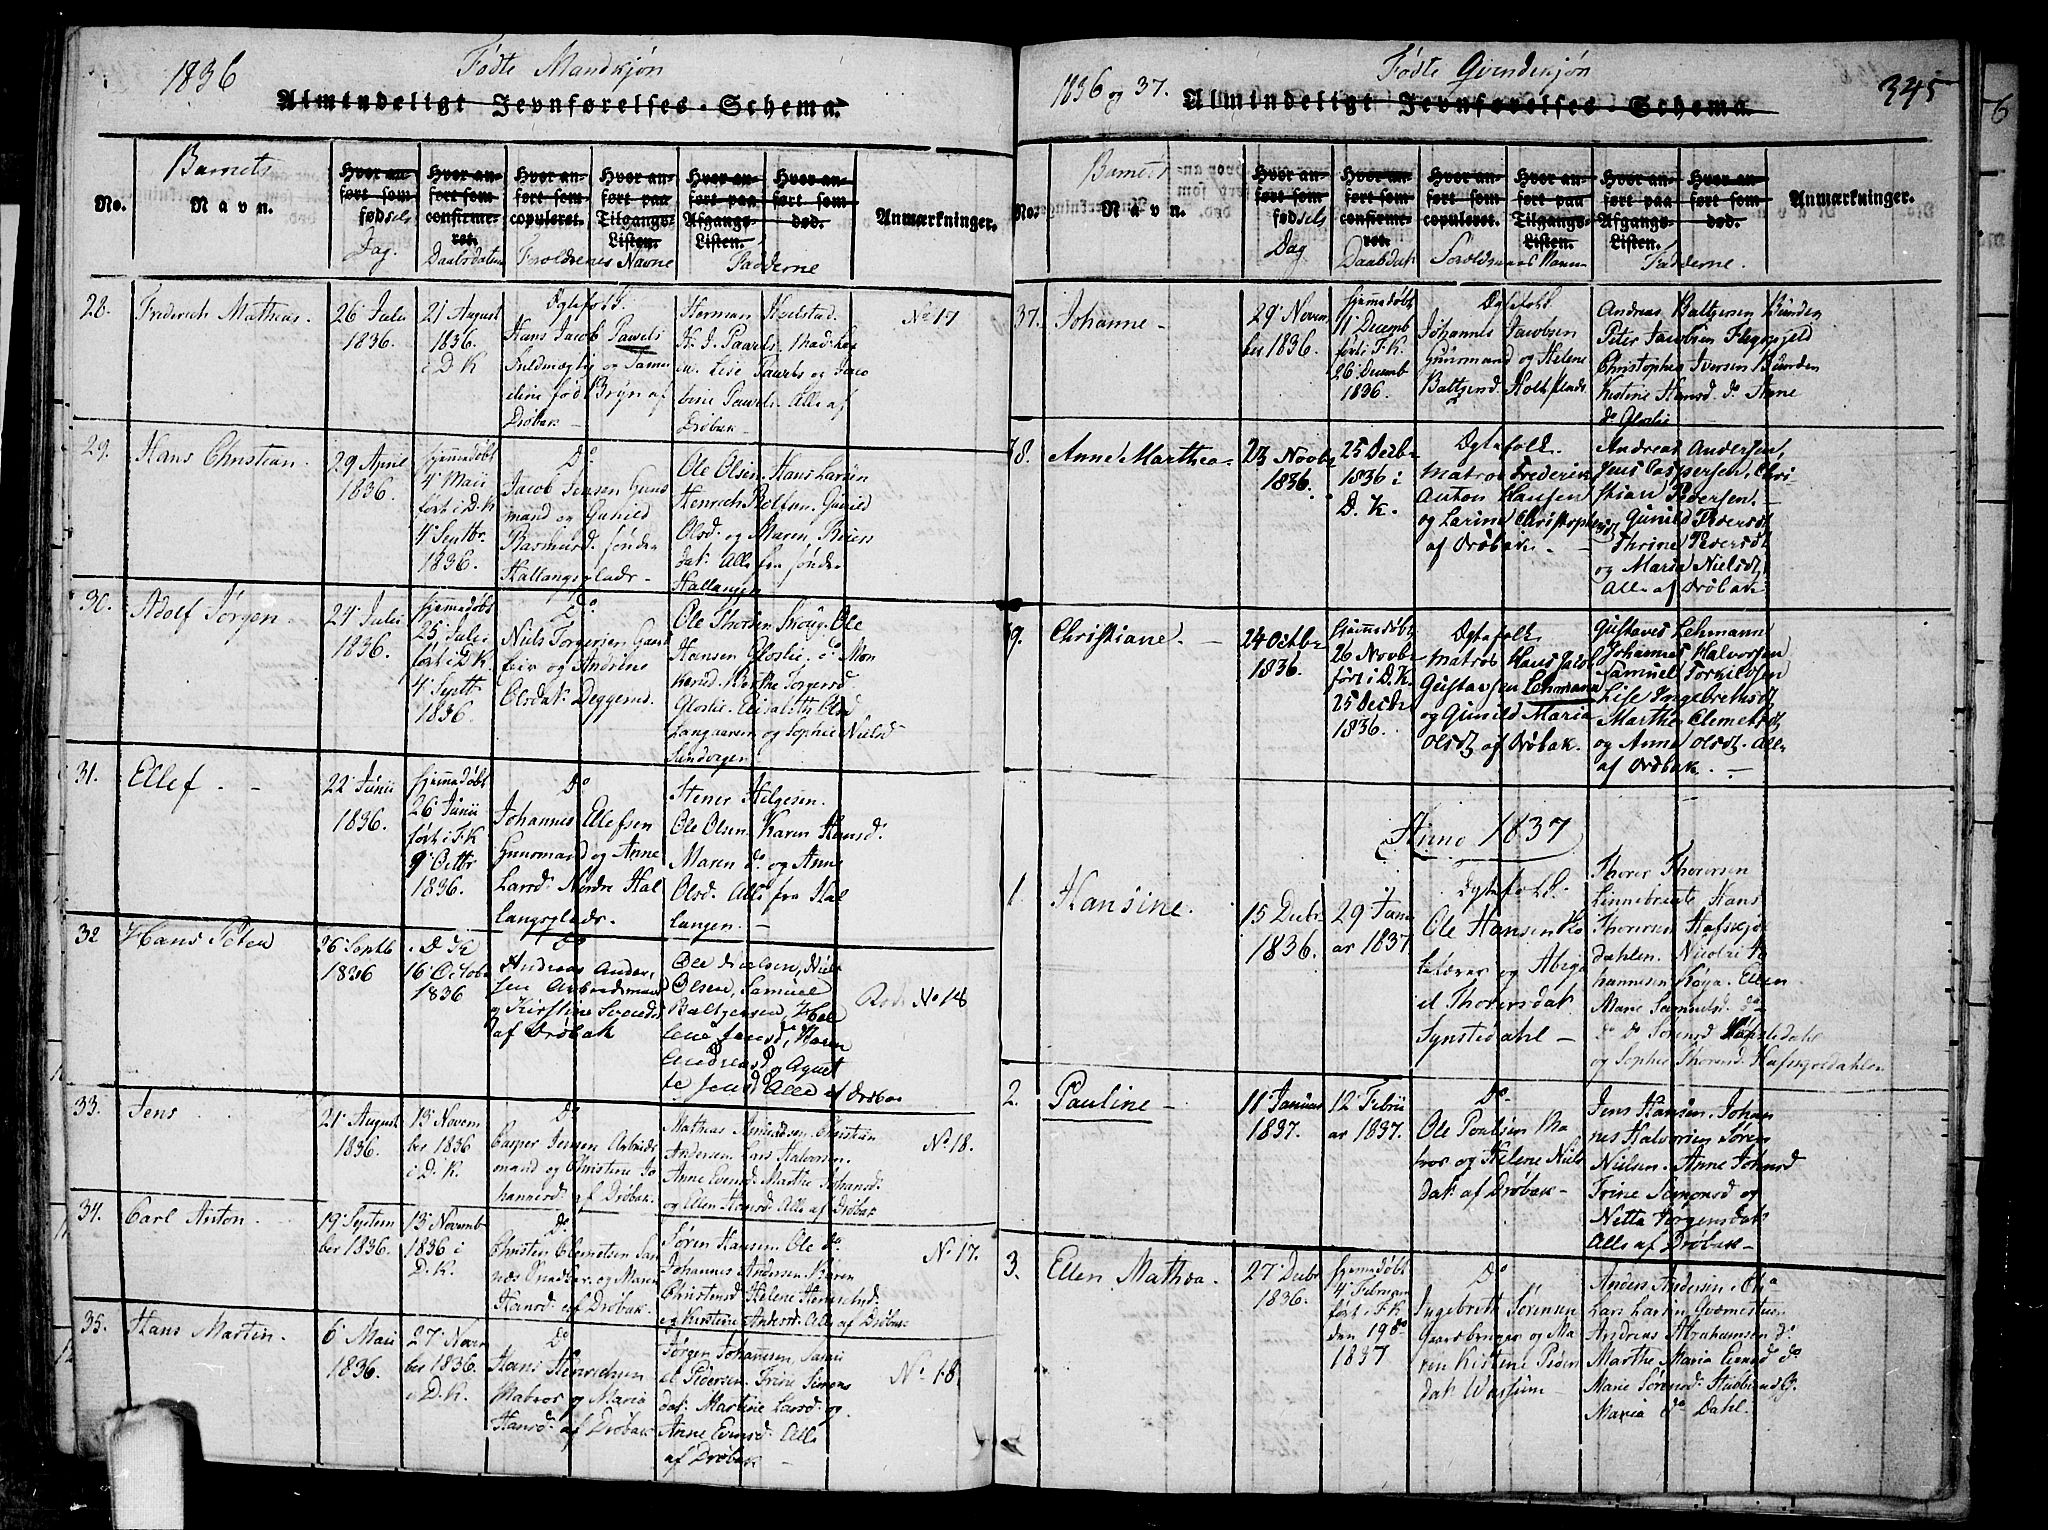 1836
Fødte Mandkjøn
Almindeligt Jevnførelses-Schema.
No.
Barnets
Navn.
Hvor anført som fødsels
Dag.
Hvor anført som confirmeret.
Daabsdatum
Hvor anført som copuleret.
Hvor anført paa Tilgangs-Listen.
Forældrenes Navne
Hvor anført paa Afgangs-Listen.
Hvor anført som død.
Fadderne
Anmærkninger.
28.
Frederich Mathias.
26 Juli
1836.
21 August
1836.
i D K
Ægtefolk
Hans Jacob Pawels
og
født Bryn af
Drøbak
Herman
Lise Pawels og Jaco
bine Pawels. Alle af
Drøbak
No 17
29.
Hans Christian.
29 April
1836.
hjemmedøbt
4 Maii
ført i D.K
4 Septbr
1836.
Do
Jacob Jensen Huus
mand og Gunild
Rasmusd. søndre
Hallangsplads.
Ole Olsen. Hans Larsen
Henrich Gunild
Olsd. og Maren
Alle fra søndre
Hallangen
30.
Adolf Jørgen.
24 Juli
1836.
hjemmedøbt
25 Juli
ført i D.K.
4 Septbr
1836.
Do
Niels Jørgensen
og Andrine
Olsdat. Deggerud.
Ole Thorsen Skoug. Ole
Hansen Glosli.
Berthe Jørgensd
Glosli. Elisabeth Olsd
Langaaren og Sophie Nielsd
Sandvigen
31.
Ellef.
22 Junii
1836.
hjemmedøbt
26 Junii
ført i F.K
9 Octbr
1836.
Do
Johannes Ellefsen
Huusmand og Anne
Larsd. Nordre Hal
langsplads.
Stener Helgesen.
Ole Olsen. Karen Hansd.
Maren do og Anne
Olsd. Alle fra Hal
langen.
32
Hans Peter
26 Septb
1836
i D K
16 Octobr
1836
Do
Andreas Ander
sen Arbeidsmand
og Kirstine Svends
af Drøbak
Ole Nielsen, Niels
Olsen, Samuel
Baltzersen, Hel
ene Jensd, Karen
Andreasd og Agnet
he Jensd Alle af Drøbak
No 18
33.
Jens
21 August
1836.
13 Novem
ber 1836
i D.K.
Do
Casper Jensen Arbeids
mand og Christine Jo
hannesd. af Drøbak.
Mathias Amundsen. Christian
Andersen. Lars Halvorsen.
Anne Evensd. Marthe Johansd.
og Alen Hansd. Alle af Drøbak
No 18.
34.
Carl Anton
19 Septem
ber 1836.
13 Novemb
1836 i
D.K.
Do
Christen Clemetsen
Snedker og Maren
Hansd. af Drøbak.
Søren Hansen. Ole do
Johannes Andersen. Karen
Christensd. Helene
og Kirstine Andersd. Alle af Drøbak
No 17.
35.
Hans Martin.
6 Maii
1836.
27 Novem
ber 1836.
i D.K.
Do
Hans Henrichsen
Matros og Maria
Hansd. af Drøbak
Jørgen Johannesen.
Pedersen. Trine Simons
dat. Martine Larsd. og
Anne Evensd. Alle
af Drøbak
No 18
1836 og 37.
Fødte Qvindekjøn
345
Almindeligt Jevnførelses-Schema.
No.
Barnets
Navn.
Hvor anført som fødsels
Dag
Hvor anført som confirmeret.
Daabsdat
Hvor anført som copuleret.
Hvor anført paa Tilgangs-Listen.
Forældrenes Navne
Hvor anført paa Afgangs-Listen.
Hvor anført som død.
Fadderne.
Anmærkninger.
37.
Johanne
29 Novem
ber 1836.
hjemmedøbt
11 Decemb
ført i F.K.
26 Decemb
1836.
Ægtefolk
Johannes Jacobsen
Huusmand og Helene
Baltzersd. Holt Plads
Andreas Baltzersen
Peter Jacobsen
Christopher Iversen
Kirstine Hansd. do Anne
do Glosli
38.
Anne Marthea
23 Novbr
1836.
25 Decbr
1836 i
D. K.
Ægtefolk.
Matros Frederik
Anton Hansen
og Larine Christophersd
af Drøbak.
Andreas Andersen,
Jens Caspersen, Chri
stian Pedersen.
Gunild Pedersd
Thrine Pedersd
og Maria Nielsd
Alle af Drøbak
39.
Christiane.
24 Octbr
1836.
hjemmedøbt
26 Novbr
ført i D.K.
25 Decbr
1836.
Ægtefolk
Matros Hans Jacob
Gustavsen Lehmann
og Gunild Maria
Olsd af Drøbak.
Gustaves Lehmann
Johannes Halvorsen
Samuel Torkildsen
Lise Ingebrethsd
Marthe Clemetsd
og Anne Olsd. Alle
af Drøbak.
Anno 1837
1
Hansine.
15 Decbr
1836.
29 Janu
ar 1837
Ægtefolk.
Ole Hansen
og Abiga
el Thoresdat.
Synstedahl
Thorer Thoresen
Hans
Thoresen Hafskjol
dahlen. Nicolai Jo
hannesen Ellen
Marie Samuelsd. do
do do Sørensd
og Sophie Thoresd. Hafskjoldahlen
2.
Pauline
11 Januar
1837.
12 Febru
ar 1837.
Do
Ole Poulsen Ma
tros og Helene Niels
dat. af Drøbak
Jens Hansen. Johan
nes Halvorsen. Søren
Nielsen. Anne Johnsd
Trine Simonsd og
Netta Jørgensdat.
Alle af Drøbak
3.
Ellen Mathea.
27 Decbr
1836.
hjemmedøbt
4 Februar
ført i F.K
den 19 do
1837
Do
Ingebrett Sørensen
Gaardbruger og Ma
ren Kistine Peders
dat.
Anders Andersen
Lars Larsen
Andreas Abrahamsen do
Marthe Maria Evensd do
Marie Sørensd.
Maria do Dahl.